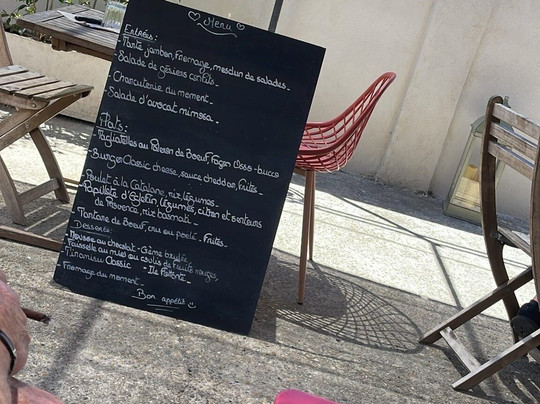 Menu
Entrées:
- Tarte jambon, Fromage, mesclun de salades -
- Salade de gésiers confits -
- Charcuterie du moment -
- Salade d'avocat mimosa -
Plats:
- Tagliatelles au de Boeuf, façon Osso-bucco
- Burger Classic cheese, sauce cheddar, frites -
- Poulet à la Catalane, riz, légumes -
- Papillote d'Eglefin, légumes, citron et senteurs
de Provence, riz basmati -
- Tartare de Boeuf, cru ou poêlé - Frites -
Desserts:
- Mousse au chocolat - Crème brulée
- Faisselle au miel ou coulis de fruits rouges,
- Tiramisu Classic - Ile Flottante -
- Fromage du moment -
Bon appétit